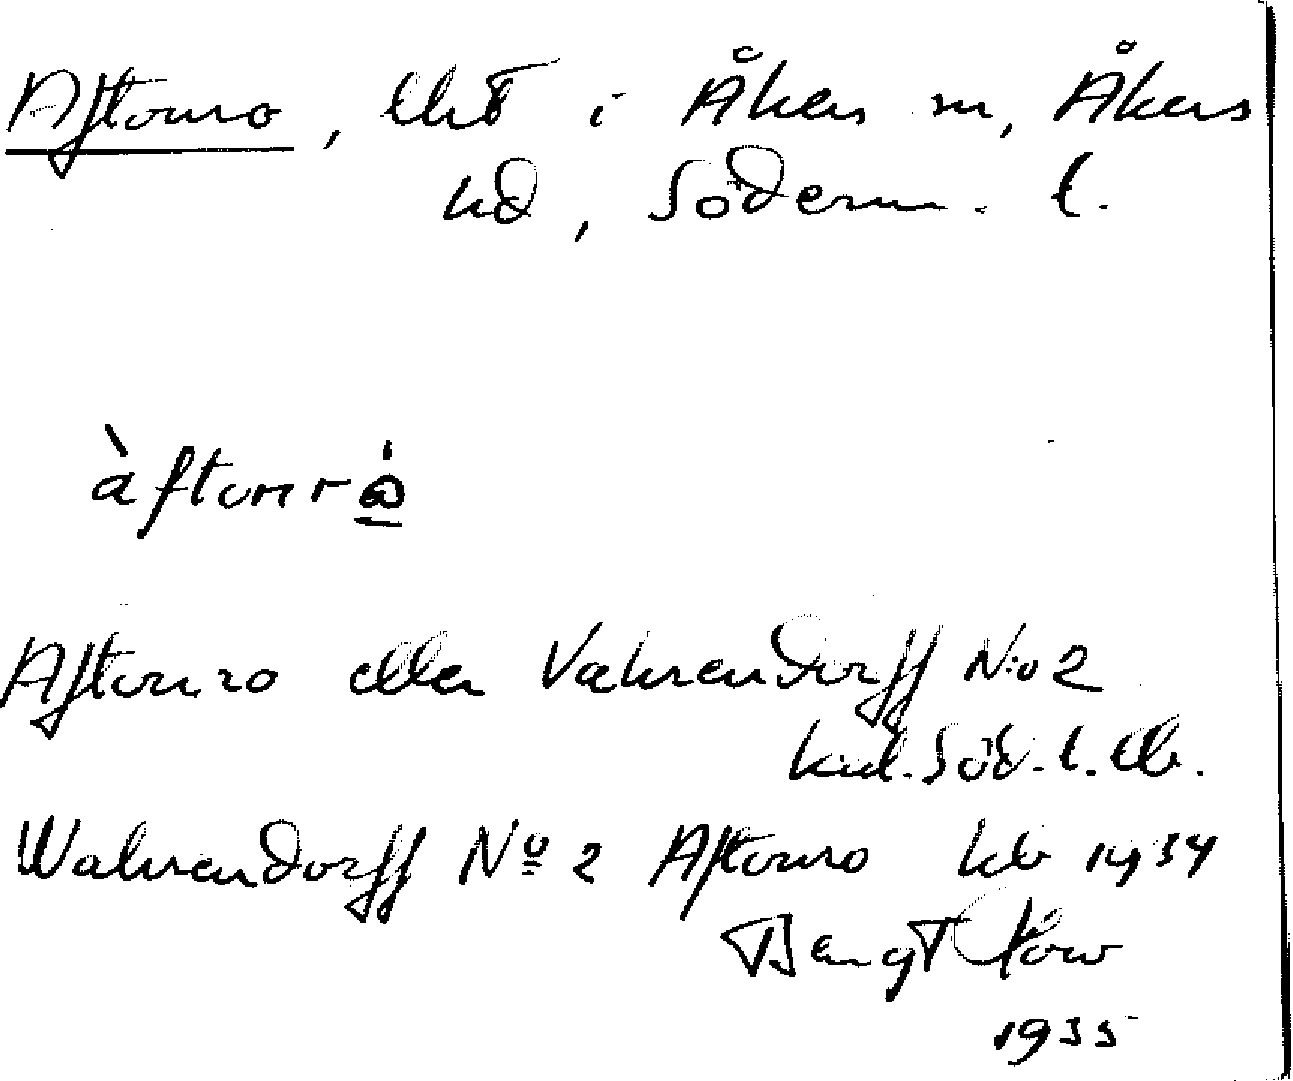 Aftonro, lht i Åkers sn, Åkers
hd, Söderm. l.
àftonrω̇
Aftonro eller Vahrendorff N:o 2
Södl. l.
Wahrendorff Nº 2 Aftonro kb 1934
Bengt
1935